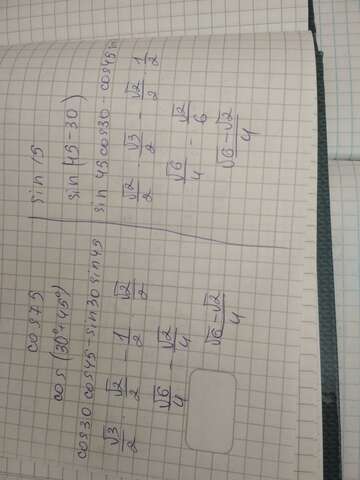 cos75
cos(30°+45°)
cos30 cos45-sin30 sin45
√3/2 · √2/2 - 1/2 √2/2
√6/4 - √2/4
√6-√2/4
sin 15
sin(45-30)
sin 45 cos30-cos45
√2/2 · √3/2 - √2/2 1/2
√6/4 - √2/6
√6-√2/4